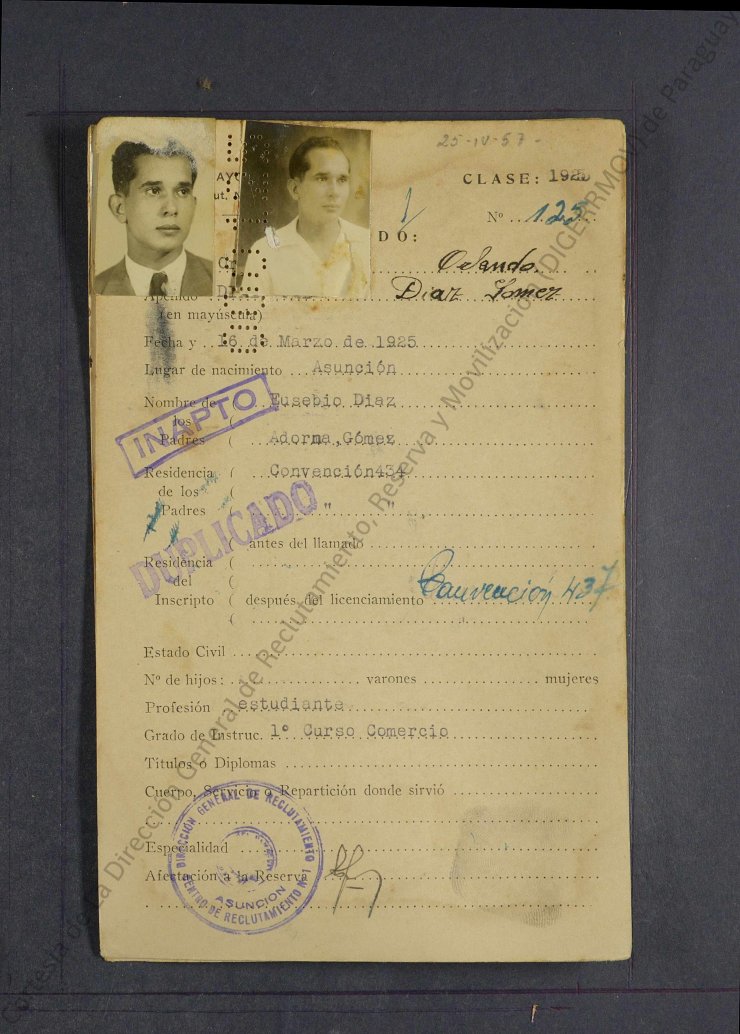 25-IV-57-
CLASE: 1925
Nº 125
DO:
Orlando
Diaz Gomez
Apellido
(en mayúscula)
Fecha y 16 de Marzo de 1925
Lugar de nacimiento Asunción
Nombre de ( Eusebio Diaz
los (
Padres ( Adorma,Gómez
INAPTO
Residencia ( Convención434
de los (
Padres ( " "
DUPLICADO
( antes del llamado
Residencia (
del (
Inscripto ( después del licenciamiento Convención 437
(
Estado Civil
Nº de hijos: varones mujeres
Profesión estudiante
Grado de Instruc. 1º Curso Comercio
Titulos o Diplomas
Cuerpo, Servicio o Repartición donde sirvió
Especialidad
Afectación a la Reserva
DIRECCIÓN GENERAL DE RECLUTAMIENTO
ASUNCION
CENTRO DE RECLUTAMIENTO Nº 1
Cortesía de La Dirección General de Reclutamiento, Reserva y Movilización (DIGERRMOV) de Paraguay